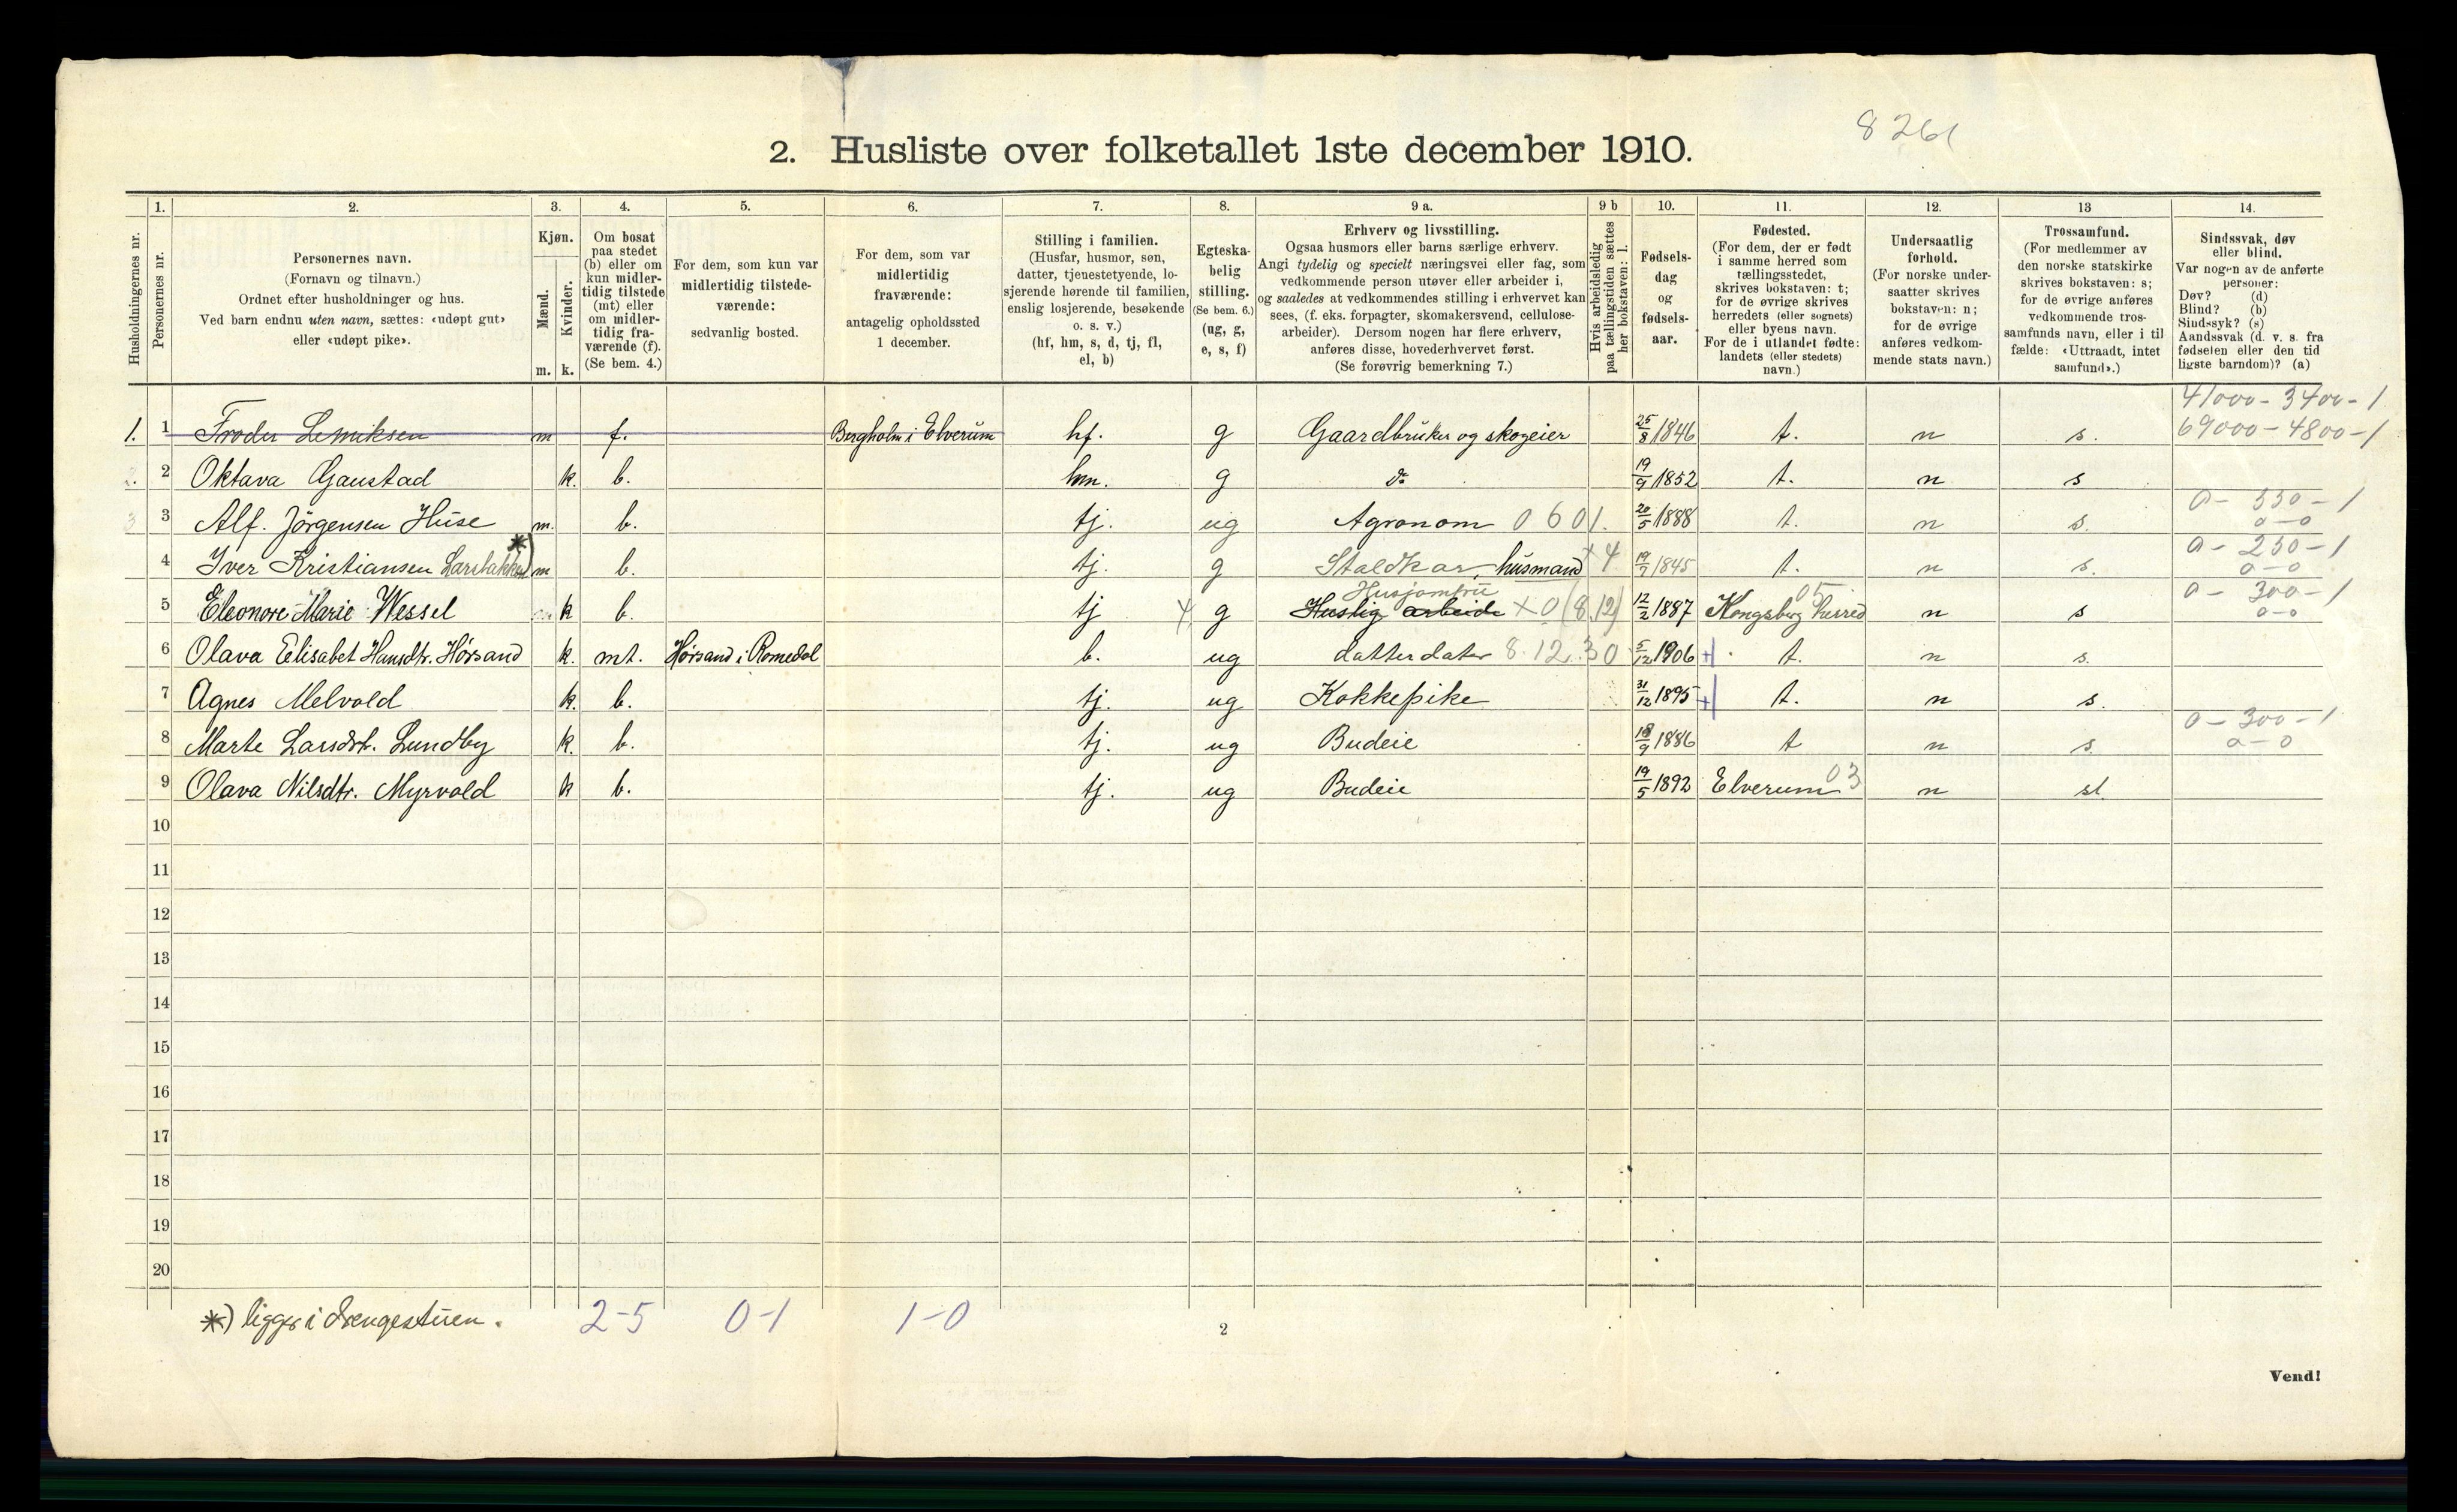 8261
2. Husliste over folketallet 1ste december 1910.
Husholdningernes nr.
1.
Personernes nr.
2.
Personernes navn.
(Fornavn og tilnavn.)
Ordnet efter husholdninger og hus.
Ved barn endnu uten navn, sættes: «udøpt gut»
eller «udøpt pike».
3.
Kjøn.
Mænd.
Kvinder.
m. k.
4.
Om bosat
paa stedet
(b) eller om
kun midler-
tidig tilstede
(mt) eller
om midler-
tidig fra-
værende (f).
(Se bem. 4.)
5.
For dem, som kun var
midlertidig tilstede-
værende:
sedvanlig bosted.
6.
For dem, som var
midlertidig
fraværende:
antagelig opholdssted
1 december.
7.
Stilling i familien.
(Husfar, husmor, søn,
datter, tjenestetyende, lo-
sjerende hørende til familien,
enslig losjerende, besøkende
o. s. v.)
(hf, hm, s, d, tj, fl,
el, b)
8.
Egteska-
belig
stilling.
(Se bem. 6.)
(ug, g,
e, s, f)
9 a.
Erhverv og livsstilling.
Ogsaa husmors eller barns særlige erhverv.
Angi tydelig og specielt næringsvei eller fag, som
vedkommende person utøver eller arbeider i,
og saaledes at vedkommendes stilling i erhvervet kan
sees, (f. eks. forpagter, skomakersvend, cellulose-
arbeider). Dersom nogen har flere erhverv,
anføres disse, hovederhvervet først.
(Se forøvrig bemerkning 7.)
9 b
Hvis arbeidsledig
paa tællingstiden sættes
her bokstaven: l.
10.
Fødsels-
dag
og
fødsels-
aar.
11.
Fødested.
(For dem, der er født
i samme herred som
tællingsstedet,
skrives bokstaven: t;
for de øvrige skrives
herredets (eller sognets)
eller byens navn.
For de i utlandet fødte:
landets (eller stedets)
navn.)
12.
Undersaatlig
forhold.
(For norske under-
saatter skrives
bokstaven: n;
for de øvrige
anføres vedkom-
mende stats navn.)
13
Trossamfund.
(For medlemmer av
den norske statskirke
skrives bokstaven: s;
for de øvrige anføres
vedkommende tros-
samfunds navn, eller i til
fælde: «Uttraadt, intet
samfund».)
14.
Sindssvak, døv
eller blind.
Var nogen av de anførte
personer:
Døv? (d)
Blind? (b)
Sindssyk? (s)
Aandssvak (d. v. s. fra
fødselen eller den tid
ligste barndom)? (a)
41000 - 3400 - 1
1. 1 m f. Bergholm i Elverum hf. g Gaardbruker og skogeier 25/8 1846 t. n s. 69000 - 4800 - 1
2. 2 Oktava Gaustad k. b. hm. g do 19/9 1852 t. n s
0 - 550 - 1
3 3 Alf. Jörgensen Huse m. b. tj. ug Agronom 0 601. 20/5 1888 t. n s. 0-0
0 - 250 - 1
4 Iver Kristiansen *) m b. tj. g Staldkar, husmand +4 19/7 1845 t. n s. 0-0
Husjomfru 05 0 - 300 - 1
5 Eleonore Marie Wessel k b. tj 4 g Huslig arbeide +0 (8.12) 12/2 1887 Kongsberg herred n s 0-0
6 Olava Elisabet Hansdtr. Hørsand k. mt. Hørsand i Romedal b. ug datterdater 8.12.30 5/12 1906 + t. n s.
7 Agnes Melvold k. b. tj. ug Kokkepike 31/12 1895 + t. n s.
0 - 300 - 1
8 Marte Larsdtr. Lundby k. b. tj. ug Budeie 18/9 1886 t n s. 0-0
9 Olava Nilsdtr. Myrvold k b. tj. ug Budeie 19/5 1892 Elverum 03 n st.
10
11
12
13
14
15
16
17
18
19
20
*) ligger i drengestuen. 2-5 0-1 1-0
2
Vend!